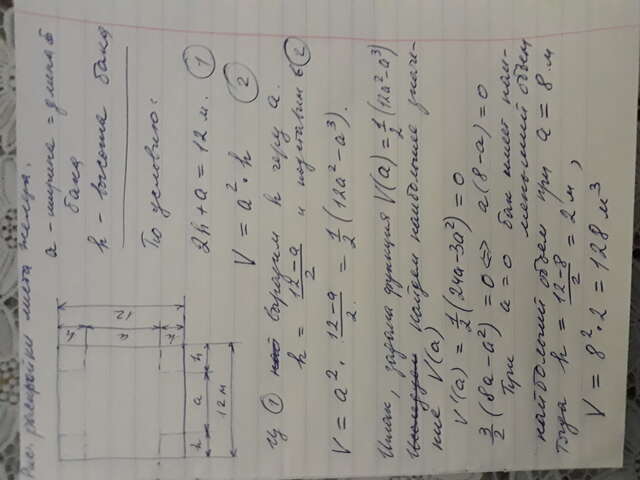 Рис. раскройки листа железа.
a - ширина = длина
бака
h - высота бака
h
a
12
h
h a h
12 м
По условию:
2h + a = 12 м. ①
V = a² · h ②
Из ① выразим h через a.
h = (12-a)/2 и подставим в ②
V = a² · (12-a)/2 = 1/2 (12a² - a³).
Итак, задана функция V(a) = 1/2 (12a² - a³)
найдем наибольшее значе-
ние V(a)
V'(a) = 1/2 (24a - 3a²) = 0
3/2 (8a - a²) = 0 ⇔ a(8-a) = 0
При a = 0 бак имеет наи-
меньший объем
наибольший объем при a = 8 м
Тогда h = (12-8)/2 = 2 м,
V = 8² · 2 = 128 м³